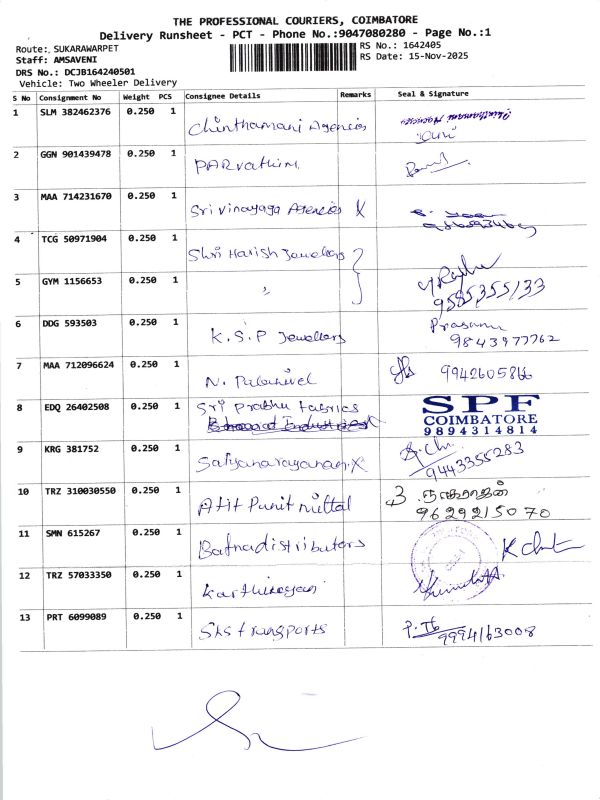 THE PROFESSIONAL COURIERS, COIMBATORE
Delivery Runsheet - PCT - Phone No.:9047080280 - Page No.:1
Route: SUKARAWARPET
RS No.: 1642405
Staff: AMSAVENI
RS Date: 15-Nov-2025
DRS No.: DCJB164240501
Vehicle: Two Wheeler Delivery
S No Consignment No Weight PCS Consignee Details Remarks Seal & Signature
1 SLM 382462376 0.250 1 Chinthamani Agencies Chinthamani Agencies
2 GGN 901439478 0.250 1 PARvathim
3 MAA 714231670 0.250 1 Sri vinayaga Agencies X
4 TCG 50971904 0.250 1 Shri Harish Jewellers
5 GYM 1156653 0.250 1 " 9585355133
6 DDG 593503 0.250 1 K.S.P Jewellers Prasanna
9843977762
7 MAA 712096624 0.250 1 N. Palanivel 9942605866
8 EDQ 26402508 0.250 1 Sri Prabhu Fabrics SPF
COIMBATORE
9894314814
9 KRG 381752 0.250 1 Satyanarayanan.X 9443355283
10 TRZ 310030550 0.250 1 Atit Punit mittal நடராஜன்
9629215070
11 SMN 615267 0.250 1 Bafnadistributors
12 TRZ 57033350 0.250 1 Karthikeyan
13 PRT 6099089 0.250 1 Sks transports 9994163008